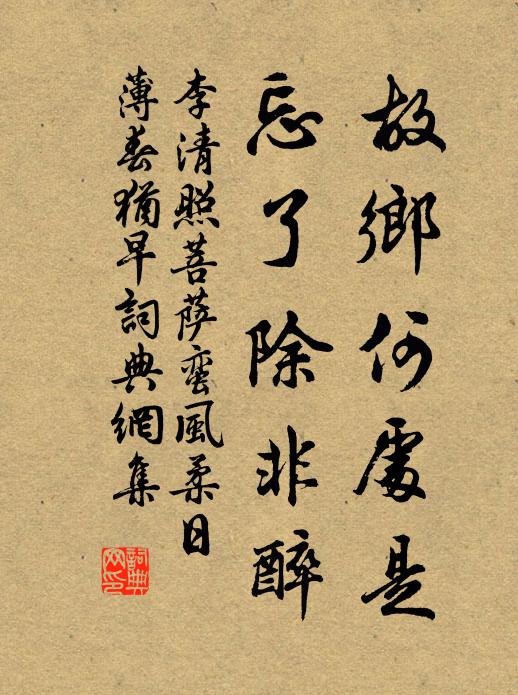 故鄉何處是
忘了除非醉
李清照菩薩蠻風柔日
薄春猶早詞典網集
詞典网印